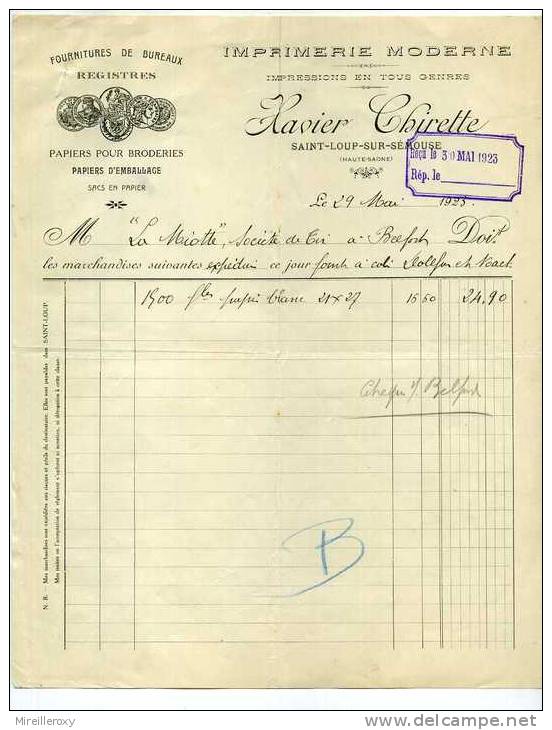 FOURNITURES DE BUREAUX
REGISTRES
PAPIERS POUR BRODERIES
PAPIERS D'EMBALLAGE
SACS EN PAPIER
IMPRIMERIE MODERNE
IMPRESSIONS EN TOUS GENRES
Xavier Chirette
SAINT-LOUP-SUR-SÉMOUSE
(HAUTE-SAONE)
Reçu le 30 MAI 1923
Rép. le
Le 29 Mai 1923
M "La Miotte", Société de Tir à Belfort Doit
les marchandises suivantes ce jour à colis
1500 papier blanc 21 x 27 16 60 24.90
Belfort
B
N. B. — Mes marchandises sont expédiées aux risques et périls du destinataire. Elles sont payables dans SAINT-LOUP.
Mes traites ou l'acceptation de règlement n'opèrent ni novation, ni dérogation à cette clause.
Mireilleroxy
delcampe.net